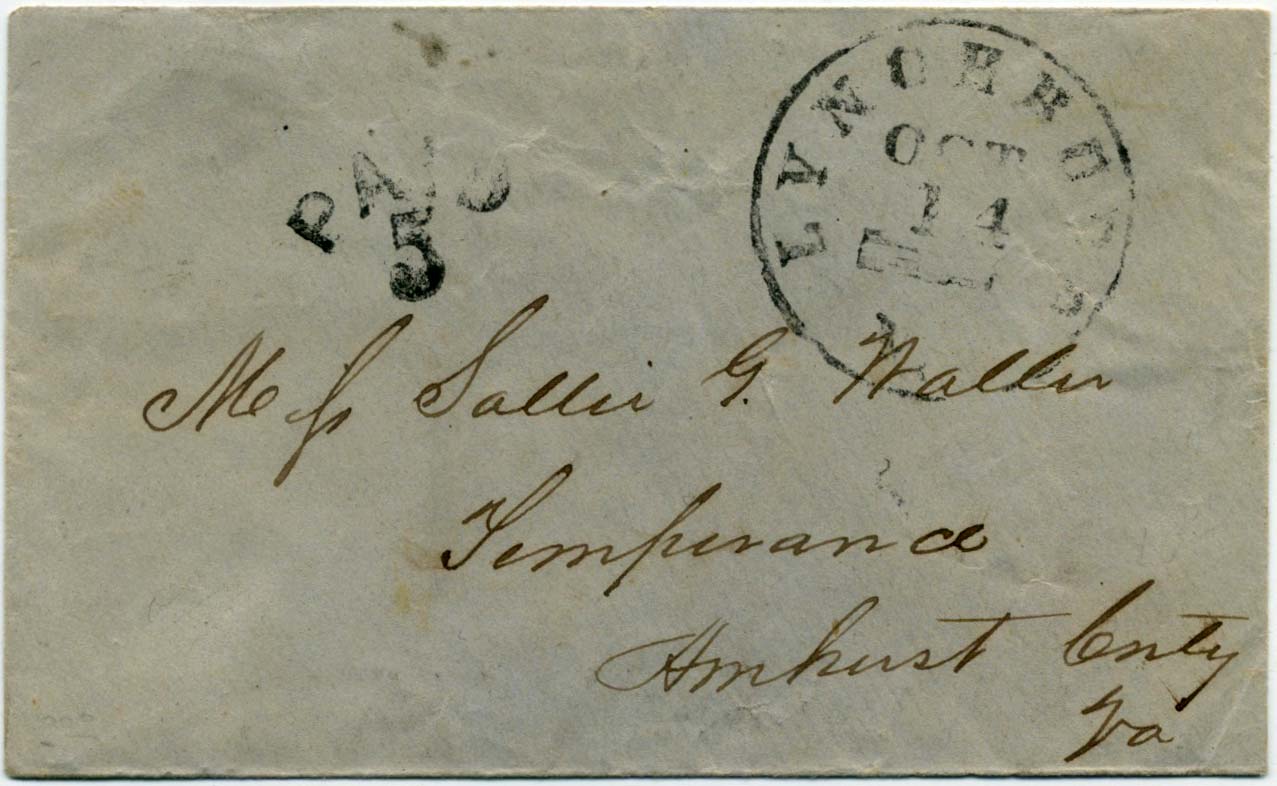 PAID
5
LYNCHBURG
OCT
14
Va
Miss Sallie G. Waller
Temperance
Amherst Cnty
Va